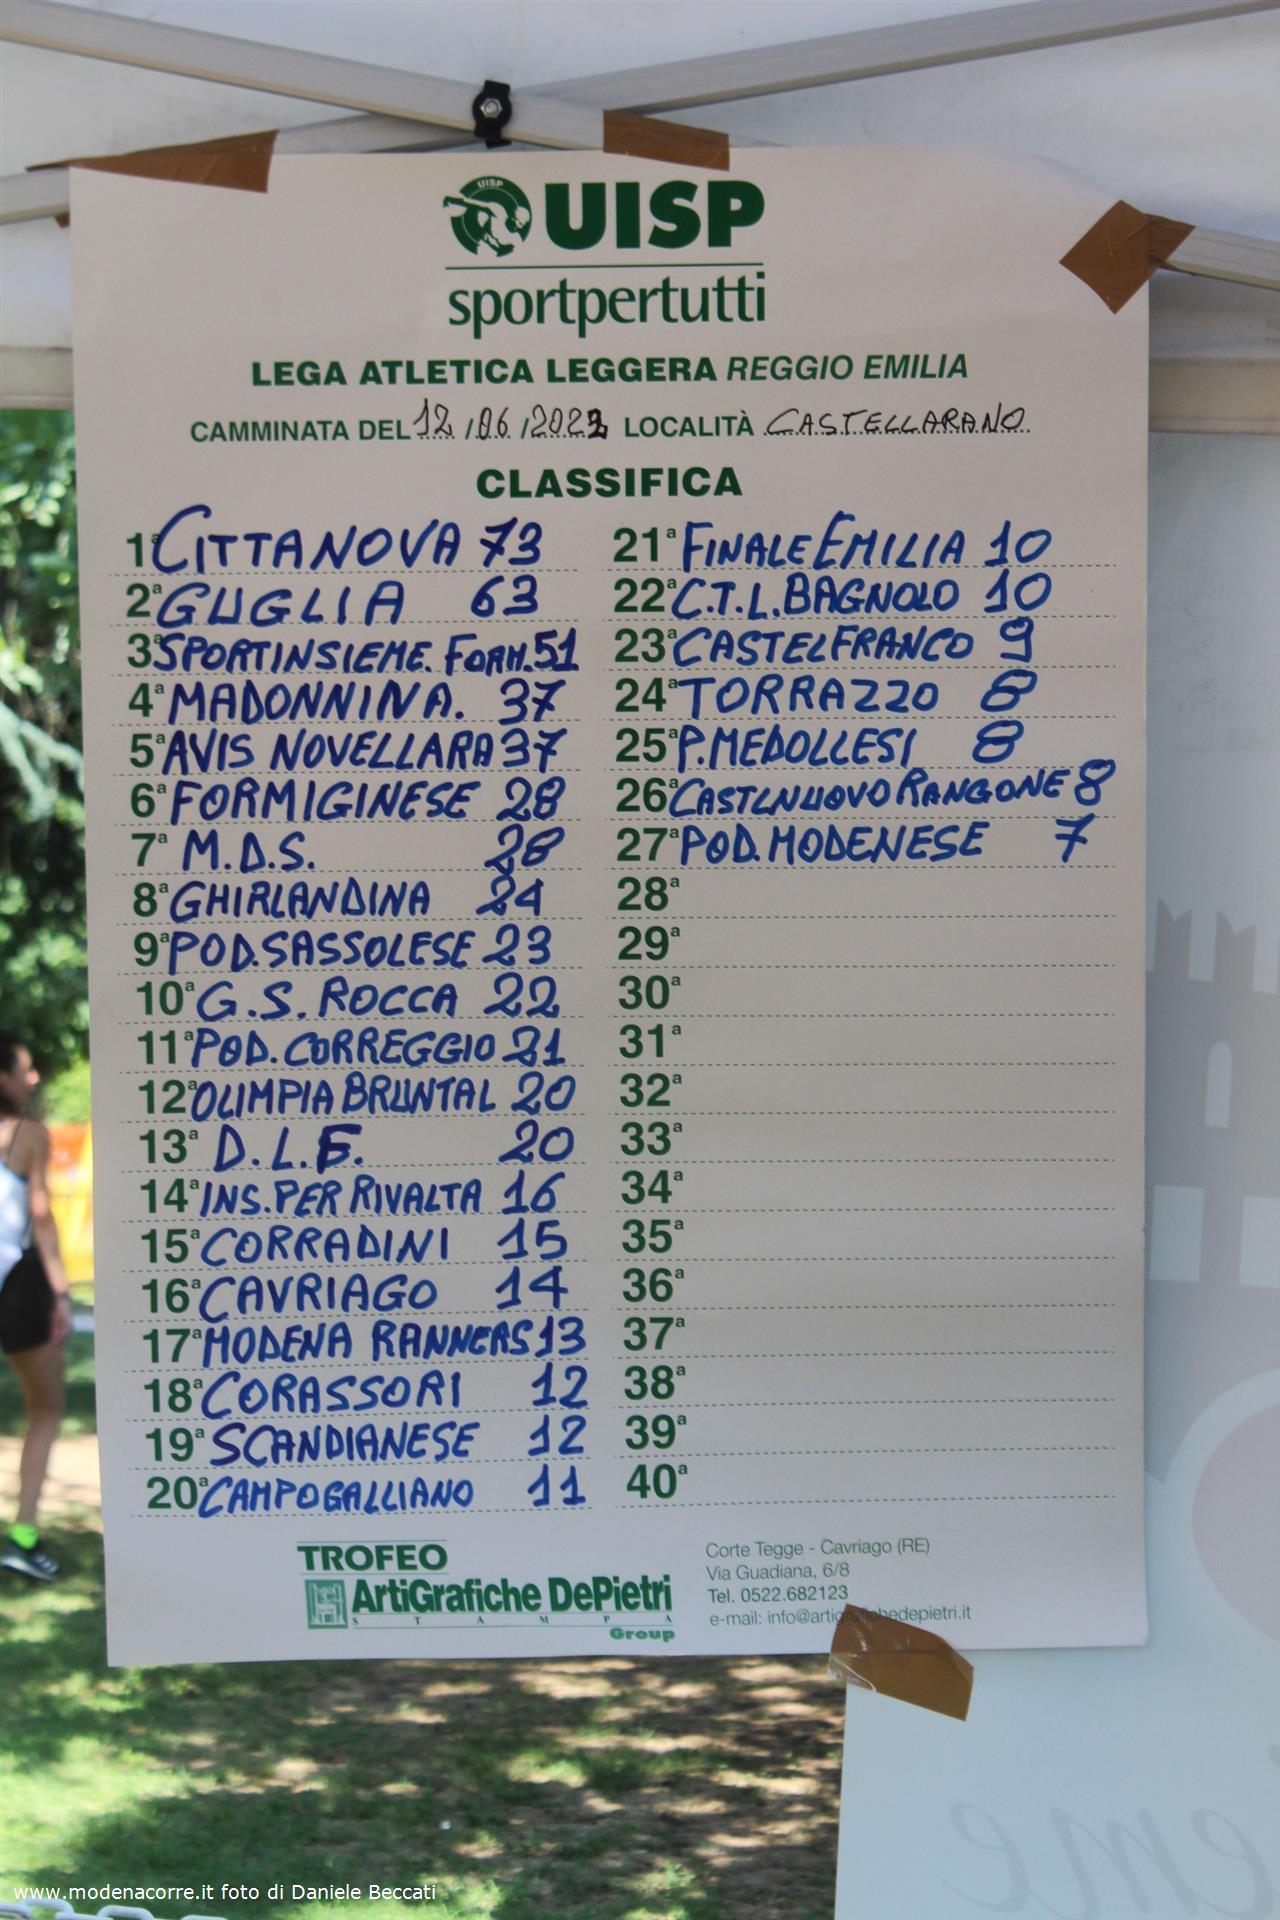 UISP
UISP
sportpertutti
LEGA ATLETICA LEGGERA REGGIO EMILIA
CAMMINATA DEL 12 /06 /2022 LOCALITÀ CASTELLARANO
CLASSIFICA
1ª CITTANOVA 73
2ª GUGLIA 63
3ª SPORTINSIEME. FORM. 51
4ª MADONNINA. 37
5ª AVIS NOVELLARA 37
6ª FORMIGINESE 28
7ª M.D.S. 28
8ª GHIRLANDINA 24
9ª POD.SASSOLESE 23
10ª G.S. ROCCA 22
11ª POD. CORREGGIO 21
12ª OLIMPIA BRUNTAL 20
13ª D.L.F. 20
14ª INS. PER RIVALTA 16
15ª CORRADINI 15
16ª CAVRIAGO 14
17ª MODENA RANNERS 13
18ª CORASSORI 12
19ª SCANDIANESE 12
20ª CAMPOGALLIANO 11
21ª FINALE EMILIA 10
22ª C.T.L. BAGNOLO 10
23ª CASTELFRANCO 9
24ª TORRAZZO 8
25ª P.MEDOLLESI 8
26ª CASTLNUOVO RANGONE 8
27ª POD. MODENESE 7
28ª
29ª
30ª
31ª
32ª
33ª
34ª
35ª
36ª
37ª
38ª
39ª
40ª
TROFEO
ArtiGrafiche DePietri
STAMPA
Group
Corte Tegge - Cavriago (RE)
Via Guadiana, 6/8
Tel. 0522.682123
e-mail: info@artigrafichedepietri.it
www.modenacorre.it foto di Daniele Beccati